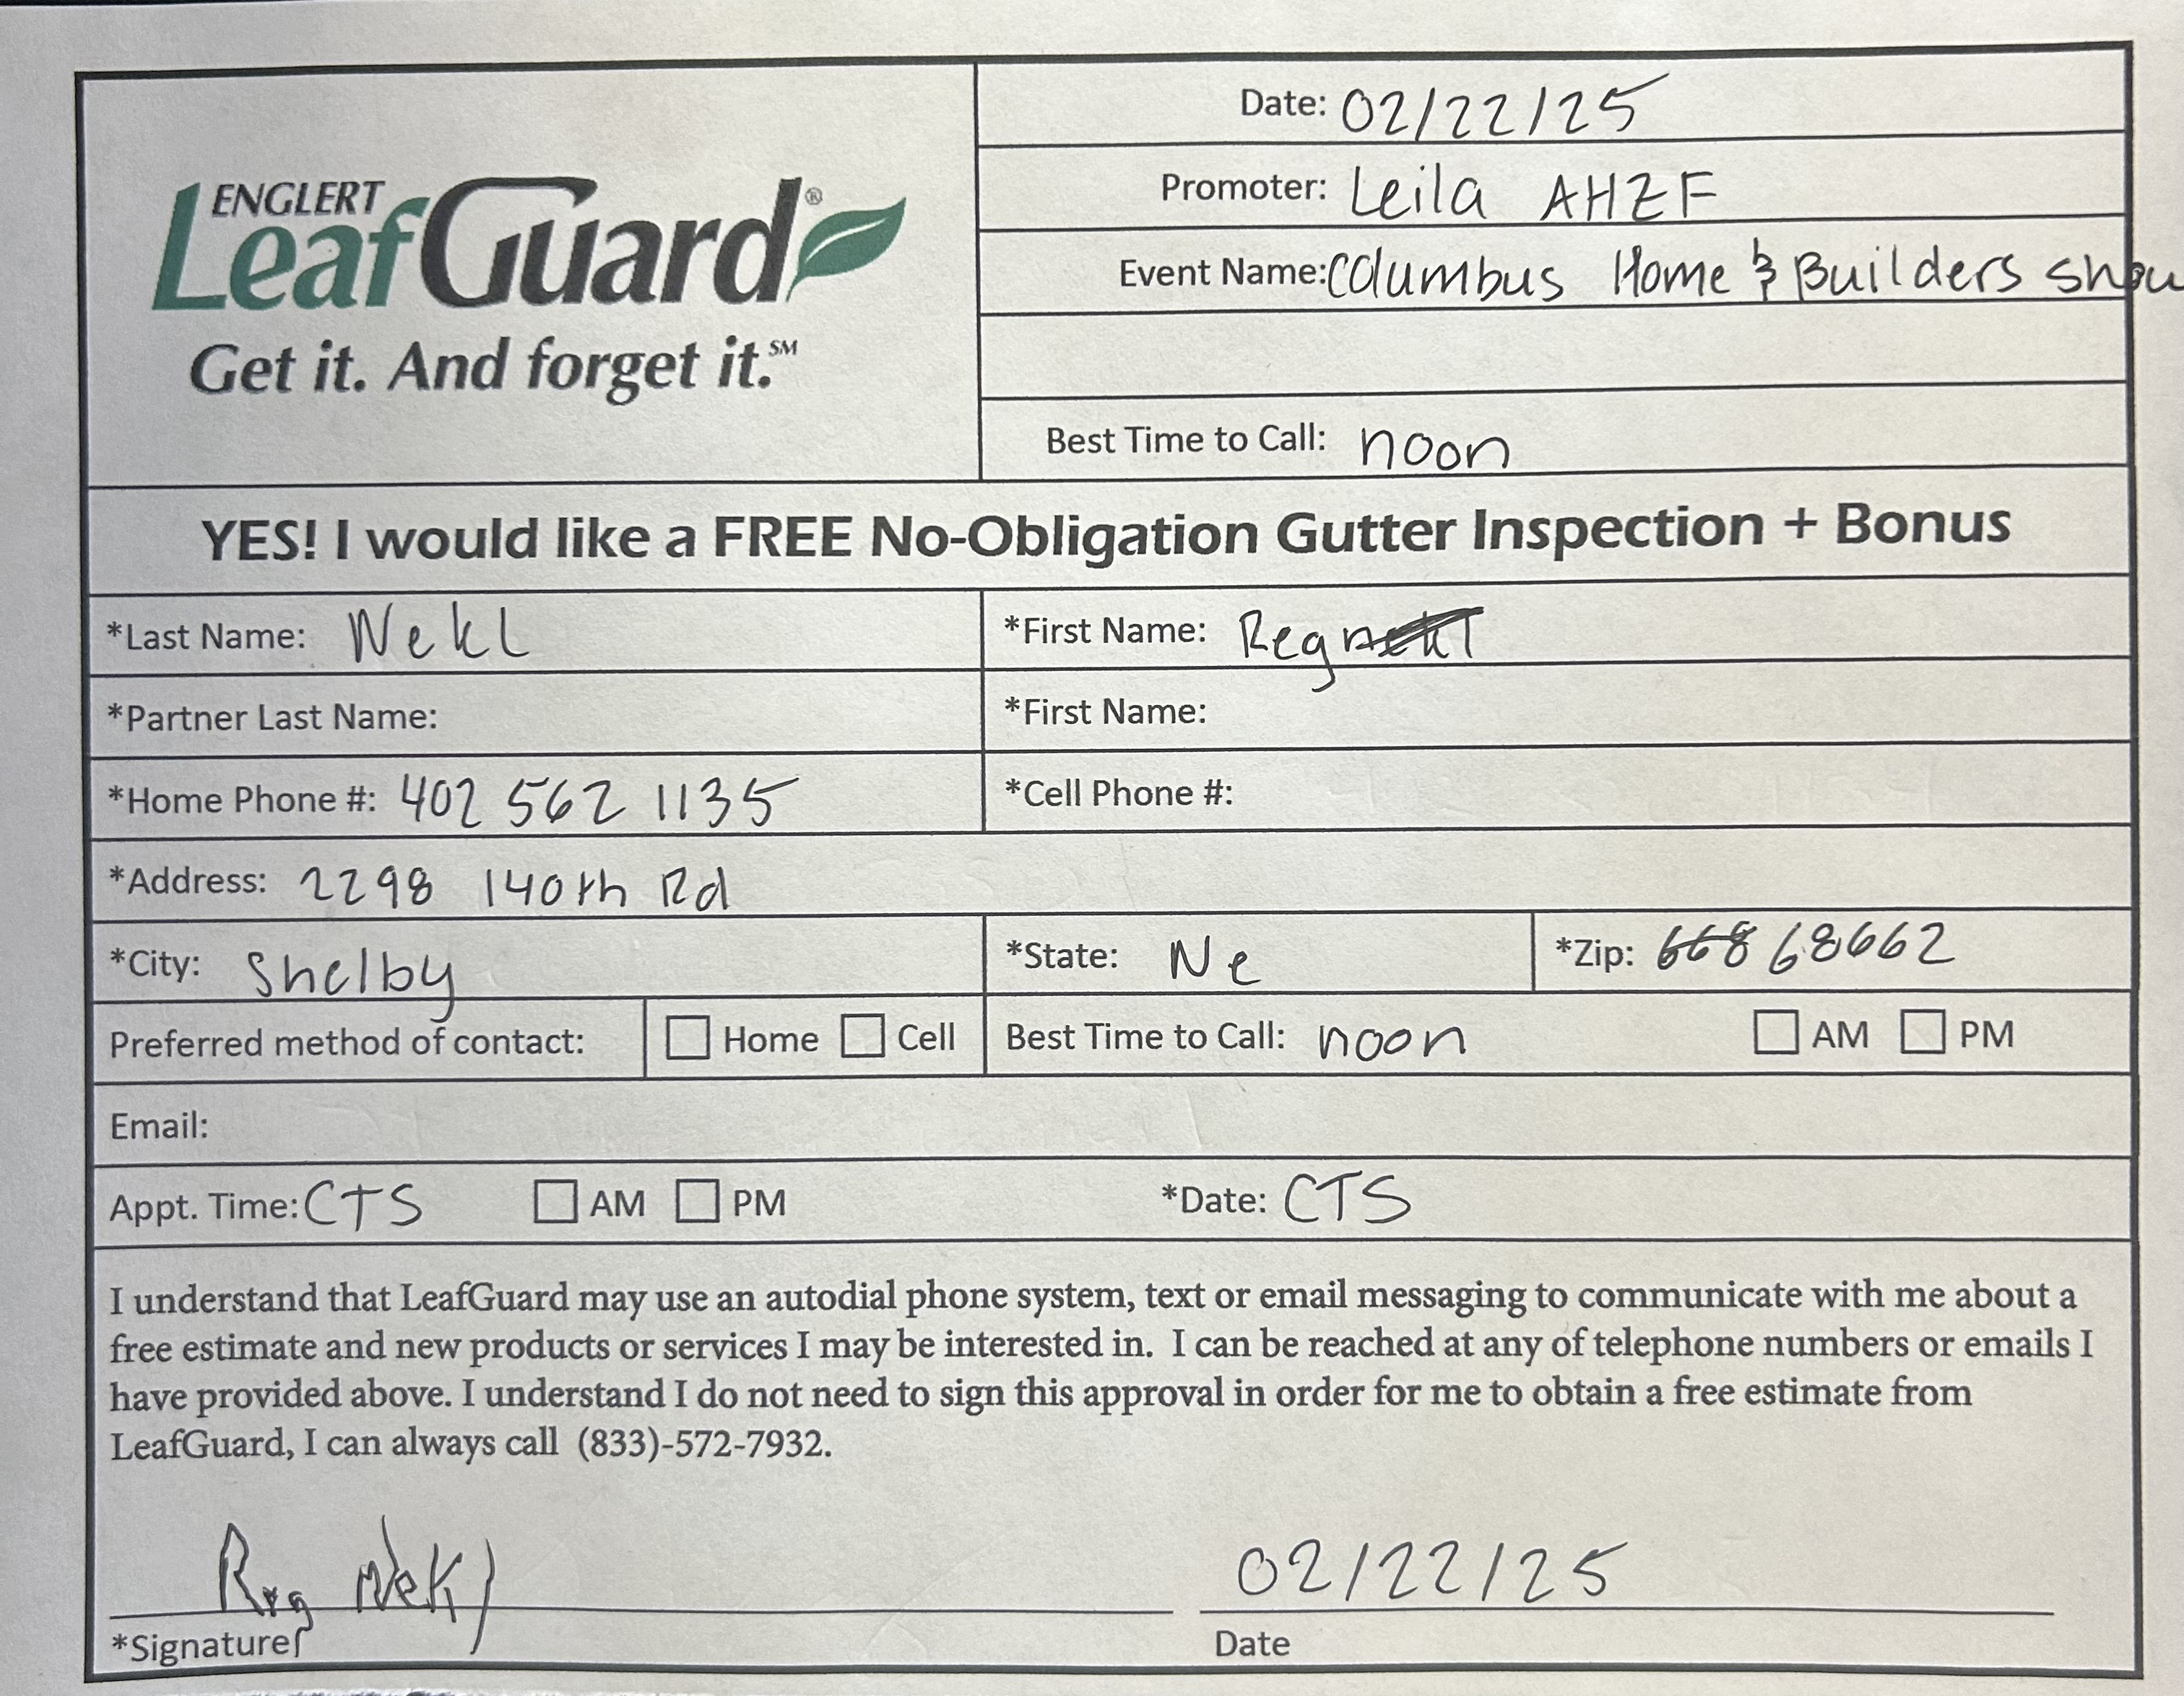 Date: 02/22/25
ENGLERT
LeafGuard®
Get it. And forget it.℠
Promoter: Leila AHZF
Event Name: Columbus Home & Builders show
Best Time to Call: noon
YES! I would like a FREE No-Obligation Gutter Inspection + Bonus
*Last Name: Nekl *First Name: Reg
*Partner Last Name: *First Name:
*Home Phone #: 402 562 1135 *Cell Phone #:
*Address: 2298 140th Rd
*City: Shelby *State: Ne *Zip: 668 68662
Preferred method of contact: Home Cell Best Time to Call: noon AM PM
Email:
Appt. Time: CTS AM PM *Date: CTS
I understand that LeafGuard may use an autodial phone system, text or email messaging to communicate with me about a
free estimate and new products or services I may be interested in. I can be reached at any of telephone numbers or emails I
have provided above. I understand I do not need to sign this approval in order for me to obtain a free estimate from
LeafGuard, I can always call (833)-572-7932.
Reg Nekl 02/22/25
*Signature Date